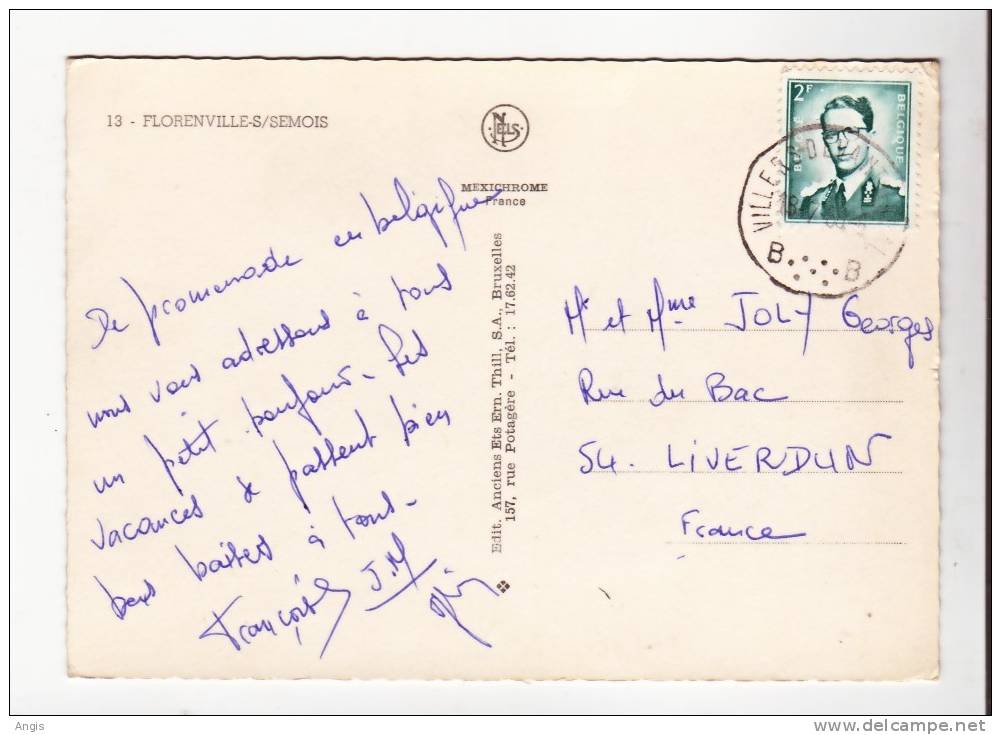 13 - FLORENVILLE-S/SEMOIS
NELS
MEXICHROME
France
De promenade en belgique
nous vous adressons à tous
un petit bonjour - Les
vacances se passent bien
bons baisers à tous -
Françoise J.M
Edit. Anciens Ets Ern. Thill, S.A., Bruxelles
157, rue Potagère - Tél. : 17.62.42
2F
BELGIË
BELGIQUE
VILLERS-DEVAN
B B
Mr et Mme JOLY Georges
Rue du Bac
54. LIVERDUN
France
Angis
www.delcampe.net